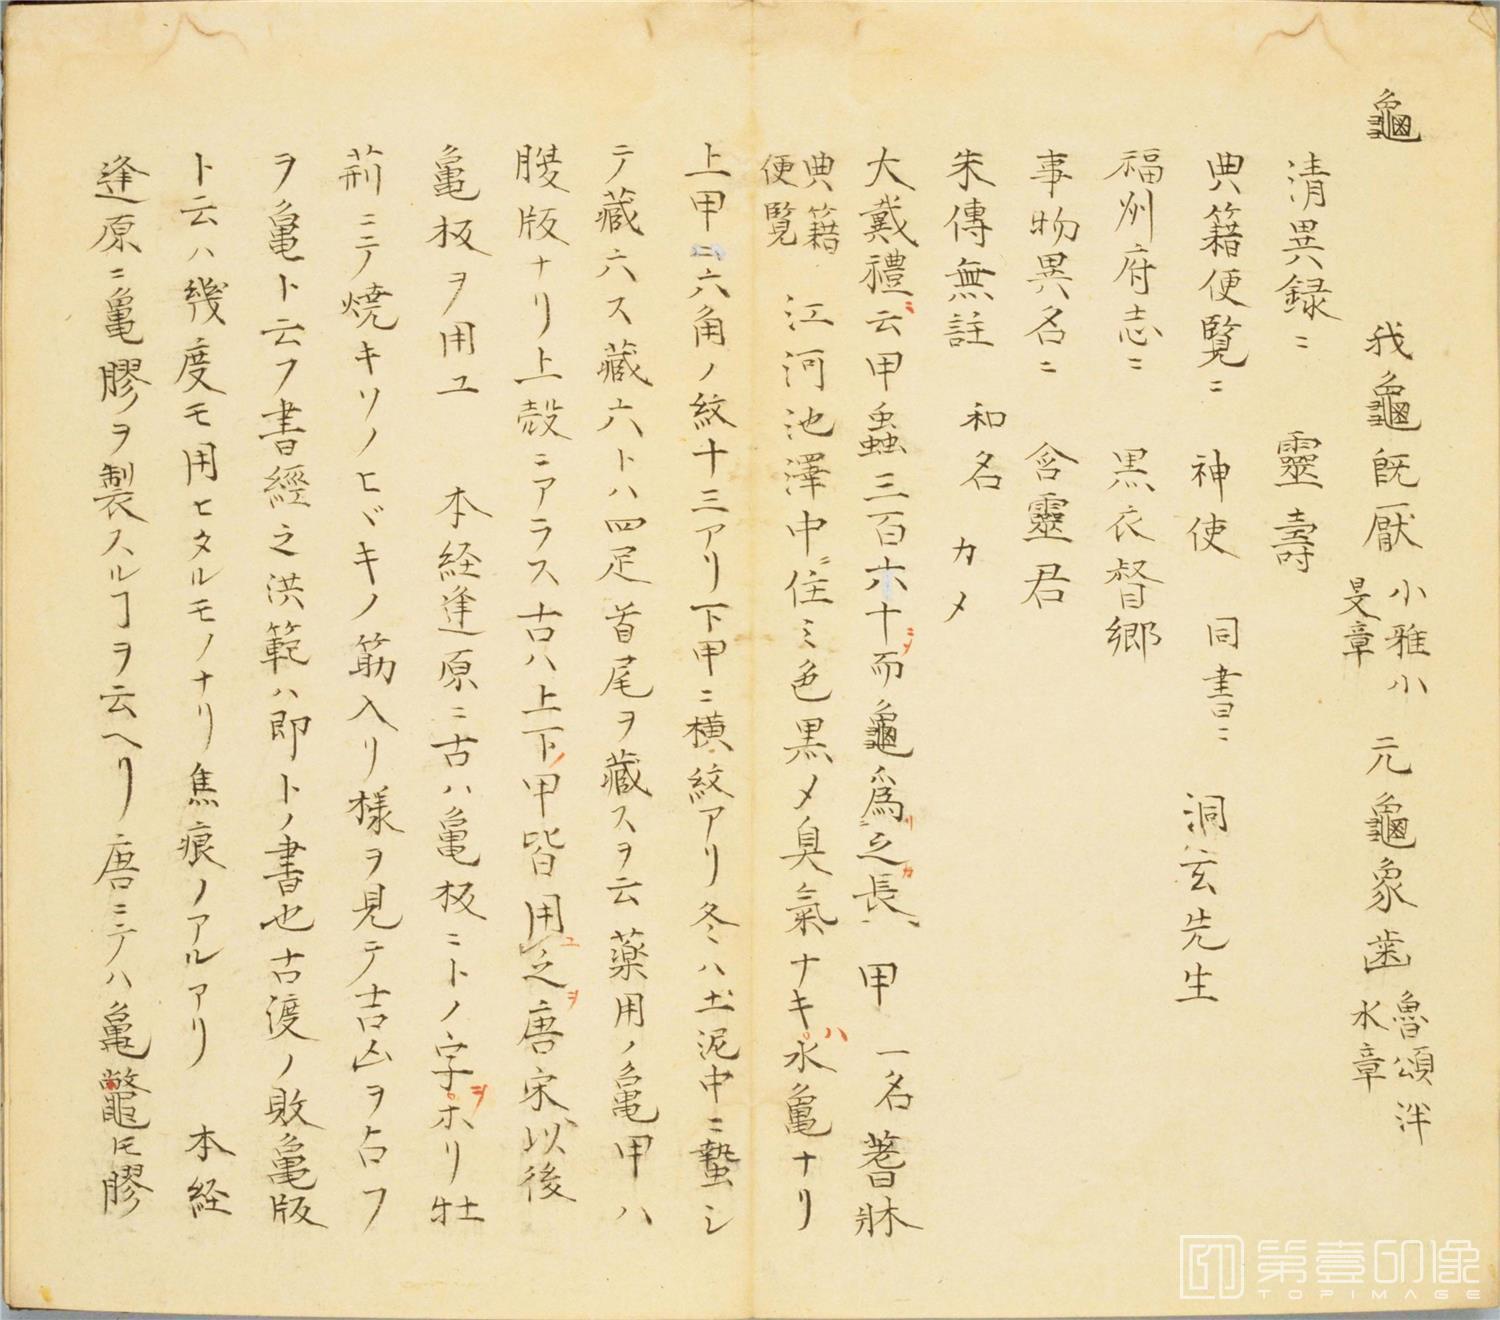 龜
我龜既厭 小雅小旻章 元龜象齒 魯頌泮水章
清異録ニ 靈壽
典籍便覧ニ 神使 同書ニ 洞玄先生
福州府志ニ 黒衣督郷
事物異名ニ 含靈君
朱傳無註 和名 カメ
大戴禮ニ云甲蟲三百六十ニノ而龜爲リ之長カ 甲 一名 蓍牀
典籍便覧 江河池澤中ニ住ミ色黒メ臭氣ナキハ水亀ナリ
上甲ニ六角ノ紋十三アリ下甲ニ横紋アリ冬ハ土泥中ニ蟄シ
テ藏六ス藏六トハ四足首尾ヲ藏スヲ云薬用ノ亀甲ハ
腹版ナリ上殻ニアラス古ハ上下ノ甲皆用ユ之ヲ唐宋以後
亀板ヲ用ユ 本経逢原ニ古ハ亀板ニトノ字ヲホリ牡
荊ニテ焼キソノヒヾキノ筋入リ様ヲ見テ吉凶ヲ占フ
ヲ亀ト云フ書經之洪範ハ即トノ書也古渡ノ敗亀版
ト云ハ幾度モ用ヒタルモノナリ焦痕ノアルアリ 本経
逢原ニ亀膠ヲ製スルヿヲ云ヘリ唐ニテハ亀鼈𪜈膠
第壹印像
TOPIMAGE